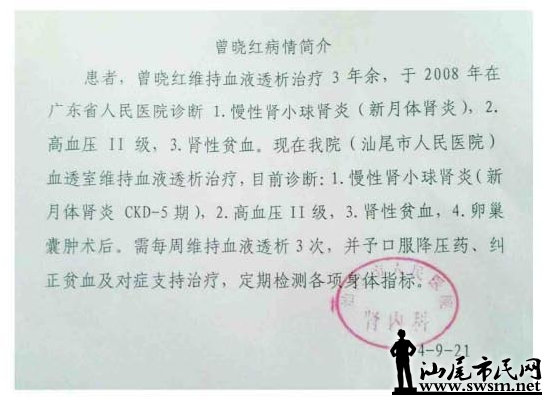 曾晓红病情简介
患者，曾晓红维持血液透析治疗 3 年余，于 2008 年在
广东省人民医院诊断 1.慢性肾小球肾炎（新月体肾炎），2.
高血压 II 级，3.肾性贫血。现在我院（汕尾市人民医院）
血透室维持血液透析治疗，目前诊断：1.慢性肾小球肾炎（新
月体肾炎 CKD-5 期），2.高血压 II 级，3.肾性贫血，4.卵巢
囊肿术后。需每周维持血液透析 3 次，并予口服降压药、纠
正贫血及对症支持治疗，定期检测各项身体指标。
人民医院
肾内科
4-9-21
汕尾市民网
www.swsm.net